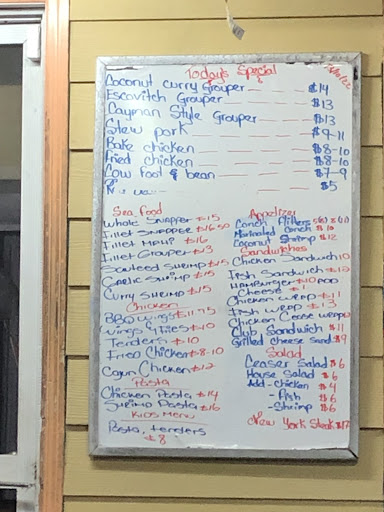 Today's Special
Coconut curry Grouper $14
Escavitch Grouper $13
Cayman Style Grouper $13
Stew pork $9-11
Bake chicken $8-10
Fried chicken $8-10
Cow foot & bean $7-9
$5
Sea Food
Whole Snapper $15
Fillet Snapper $16.50
Fillet Mahi $16
Fillet Grouper $13
Sauteed Shrimp $15
Garlic Shrimp $15
Curry Shrimp $15
Chicken
BBQ Wings $11.75
Wings & Fries $10
Tenders $10
Fried Chicken $8-10
Cajun Chicken $12
Pasta
Chicken Pasta $14
Shrimp Pasta $16
Kids Menu
Pasta, tenders
$8
Appetizer
Conch Fritters
Marinated Conch $10
Coconut Shrimp $12
Sandwiches
Chicken Sandwich 10
Fish Sandwich $12
Hamburger $10 ADD
Cheese $1
Chicken wrap $11
Fish wrap $13
Chicken Cease wrap
Club Sandwich $11
Grilled cheese sand $9
Salad
Ceaser Salad $6
House Salad $6
Add - chicken $4
- Fish $6
- Shrimp $6
New York Steak $17